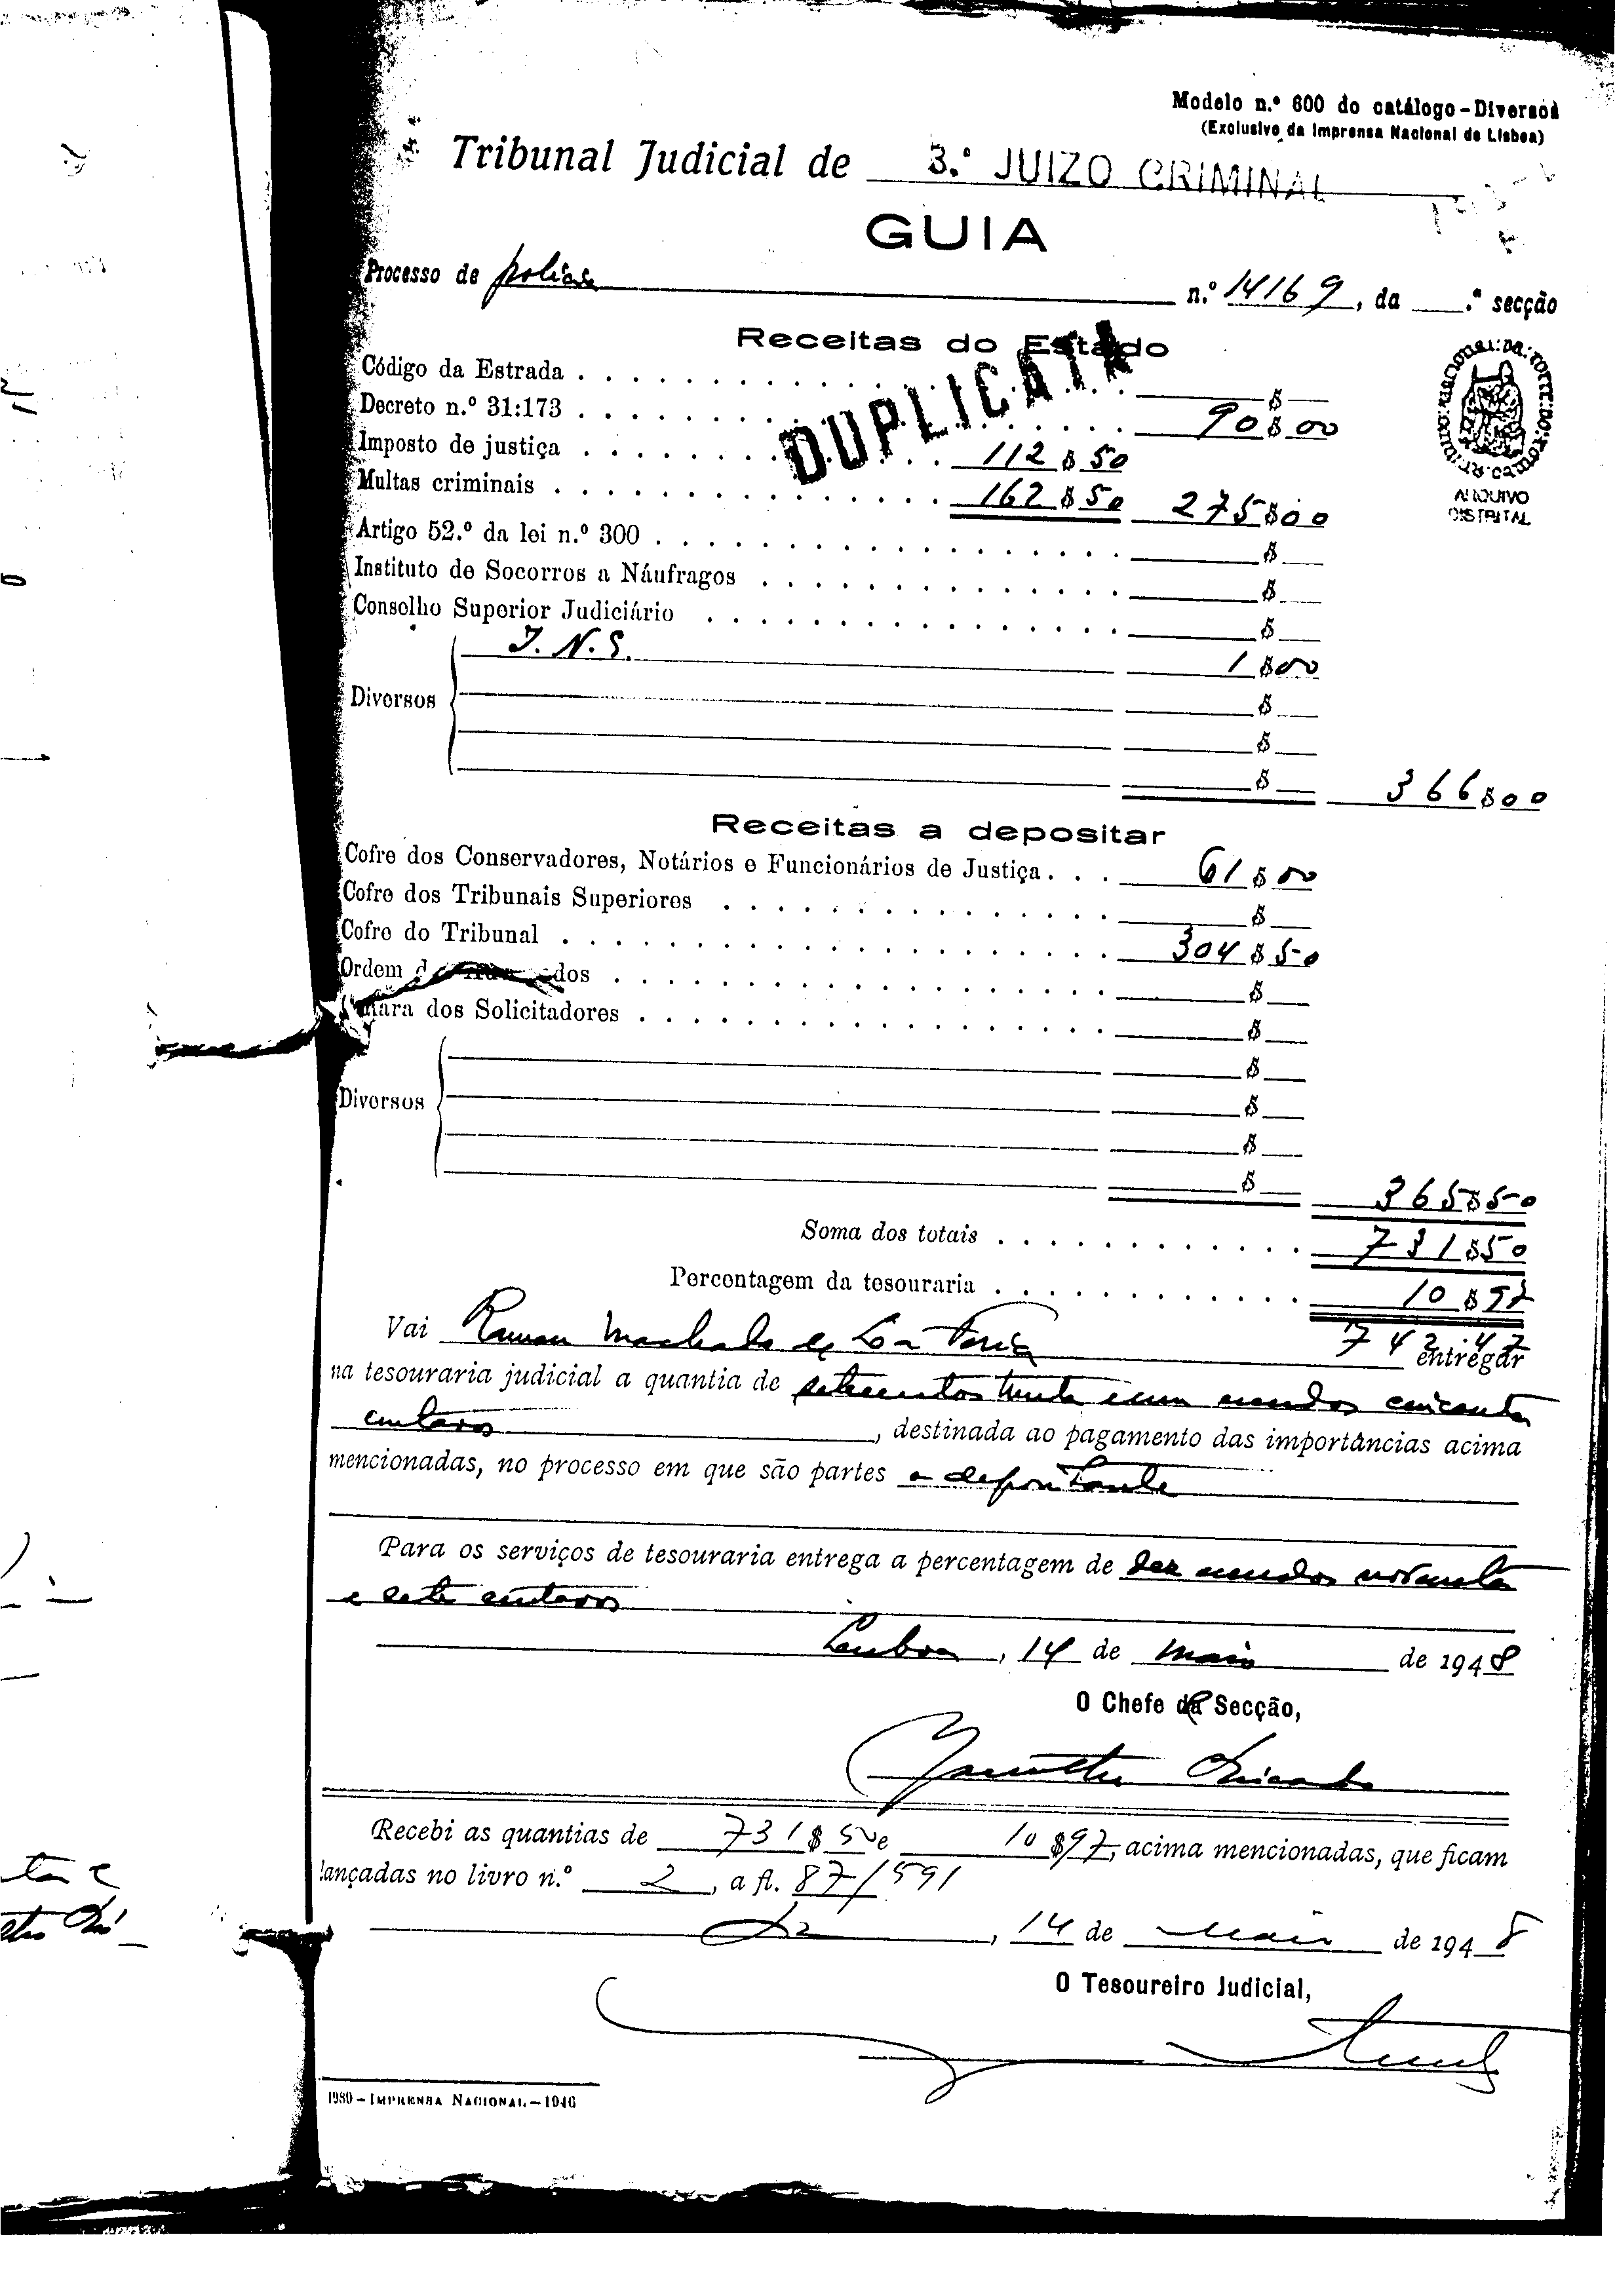 Modelo n.º 600 do catálogo-Diversos
(Exclusivo da Imprensa Nacional de Lisboa)
Tribunal Judicial de 3.º JUIZO CRIMINAL
GUIA
Processo de polícia n.º 14169, da .ª secção
Receitas do Estado
DUPLICATA
Código da Estrada $
Decreto n.º 31:173 90$00
Imposto de justiça 112$50
Multas criminais 162$50 275$00
Artigo 52.º da lei n.º 300 $
Instituto de Socorros a Náufragos $
Conselho Superior Judiciário $
J. N. S. 1$00
Diversos $
$
$ 366$00
ARQUIVO
DISTRITAL
Receitas a depositar
Cofre dos Conservadores, Notários e Funcionários de Justiça 61$00
Cofre dos Tribunais Superiores $
Cofre do Tribunal 304$50
Ordem dos $
mara dos Solicitadores $
$
Diversos $
$
$ 365$50
Soma dos totais 731$50
Percentagem da tesouraria 10$97
742.47
Vai Machado entregar
na tesouraria judicial a quantia de setecentos trinta e um escudos cincoenta
centavos, destinada ao pagamento das importâncias acima
mencionadas, no processo em que são partes o depositante
Para os serviços de tesouraria entrega a percentagem de dez escudos noventa
e sete centavos
Lisboa, 14 de Maio de 1948
O Chefe da Secção,
Recebi as quantias de 731$50 e 10$97, acima mencionadas, que ficam
lançadas no livro n.º 2, a fl. 87/591
Lx, 14 de Maio de 1948
O Tesoureiro Judicial,
1980 – IMPRENSA NACIONAL – 1946